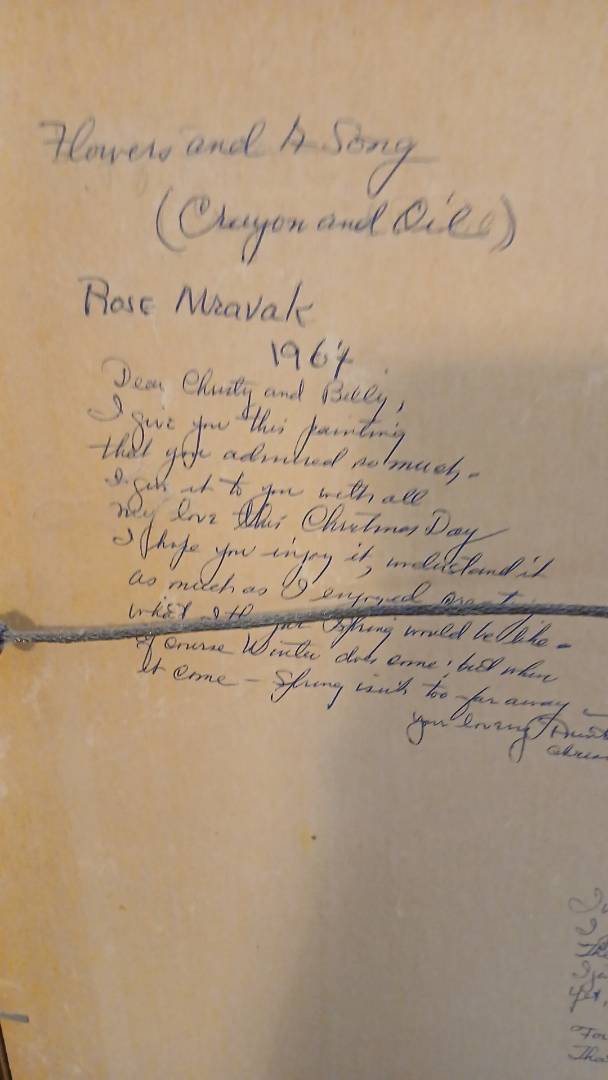 Flowers and A Song
(Crayon and Oil)
Rose Mravak
1967
Dear Christy and Billy,
I give you this painting
that you admired so much.
I give it to you with all
my love this Christmas Day
I hope you injoy it, understand it
as much as I enjoyed
what I Spring would be like.
Of course Winter does come; but when
it come - Spring isn't too far away -
your loving Aunt
I
The
Yet,
Tha